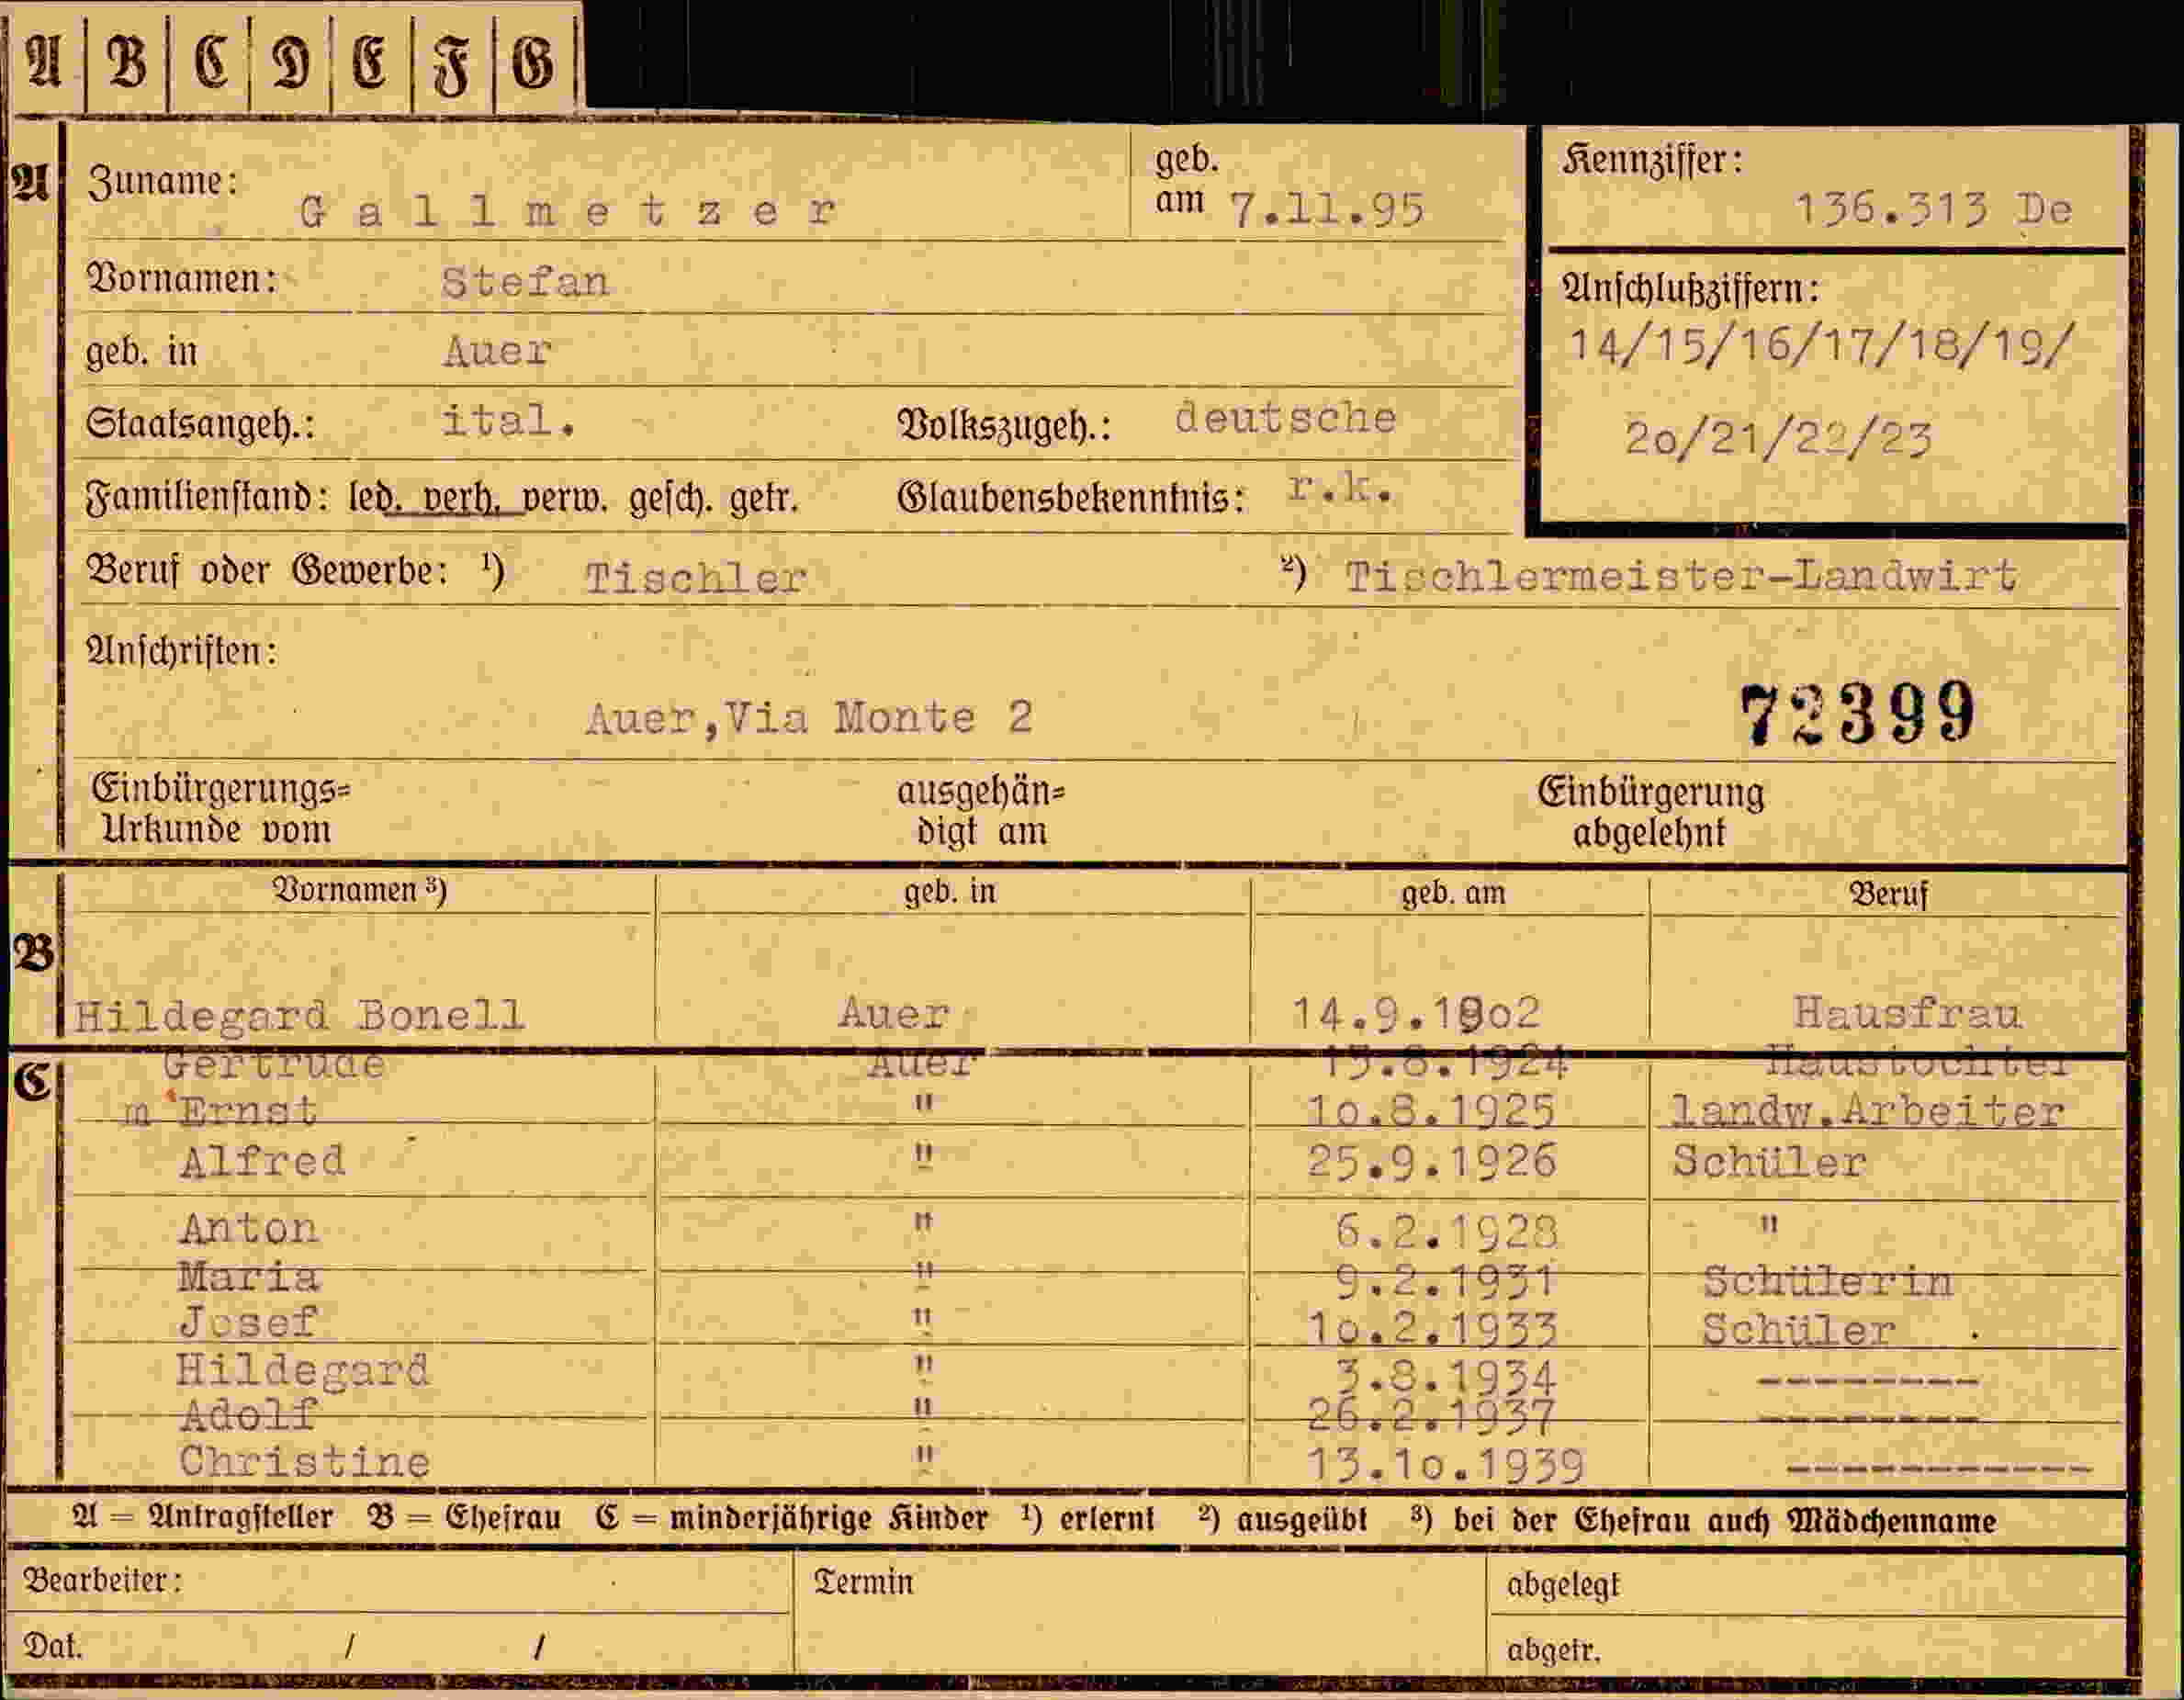 A B C D E F G
A Zuname: Gallmetzer geb. am 7.11.95
Kennziffer: 136.313 De
Vornamen: Stefan
Anschlußziffern:
14/15/16/17/18/19/
20/21/22/23
geb. in Auer
Staatsangeh.: ital. Volkszugeh.: deutsche
Familienstand: led. verh. verw. gesch. getr. Glaubensbekenntnis: r.k.
Beruf oder Gewerbe: ¹) Tischler ²) Tischlermeister-Landwirt
Anschriften:
Auer,Via Monte 2
72399
Einbürgerungs= ausgehän= Einbürgerung
Urkunde vom digt am abgelehnt
Vornamen ³) geb. in geb. am Beruf
B
Hildegard Bonell Auer 14.9.1902 Hausfrau
C Gertrude Auer .8.1924 Haustochter
m Ernst " 10.8.1925 landw.Arbeiter
Alfred " 25.9.1926 Schüler
Anton " 6.2.1928 "
Maria " 9.2.1931 Schülerin
Josef " 10.2.1933 Schüler
Hildegard " 3.8.1934 --------
Adolf " 26.2.1937 --------
Christine " 13.10.1939 -----------
A = Antragsteller B = Ehefrau C = minderjährige Kinder ¹) erlernt ²) ausgeübt ³) bei der Ehefrau auch Mädchenname
Bearbeiter: Termin abgelegt
Dat. / / abgetr.